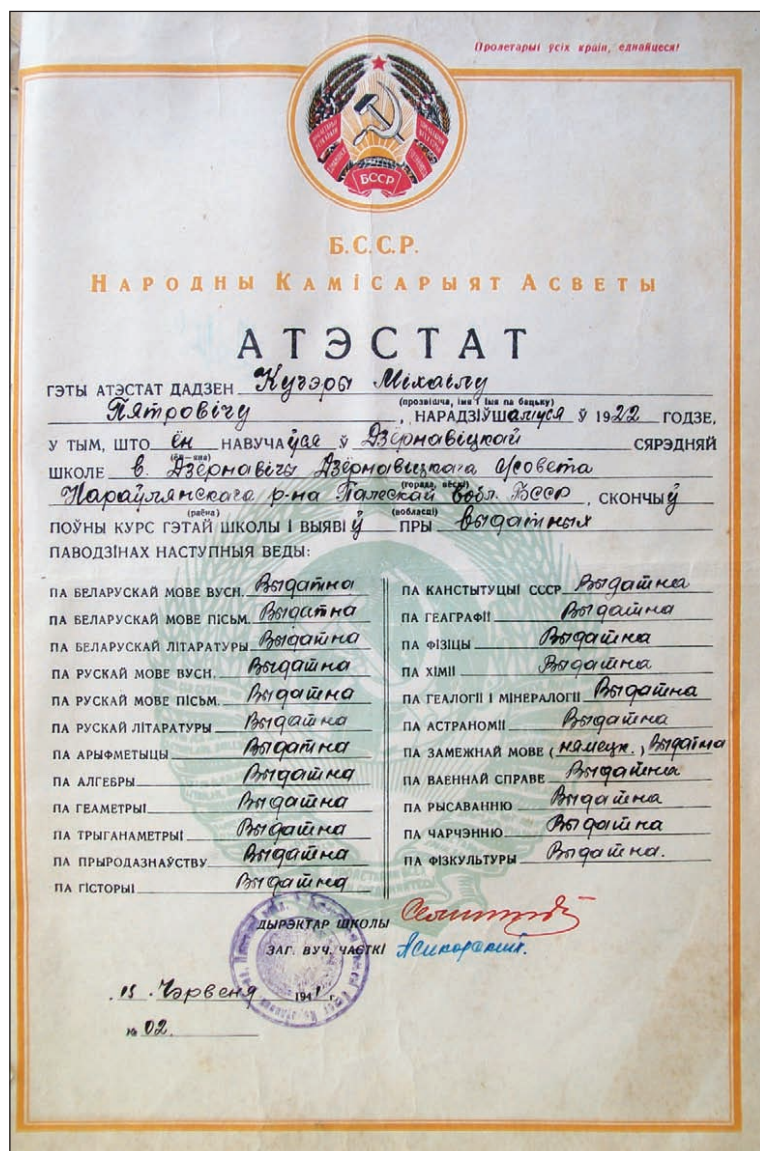 Пролетарыі ўсіх краін, еднайцеся!
БССР
Б.С.С.Р.
Народны Камісарыят Асветы
АТЭСТАТ
ГЭТЫ АТЭСТАТ ДАДЗЕН Кучэры Міхаілу
(прозвішча, імя і імя па бацьку)
Пятровічу, НАРАДЗІЎШАМУСЯ Ў 1922 ГОДЗЕ,
У ТЫМ, ШТО ён НАВУЧАЎСЯ Ў Дзёрнавіцкай СЯРЭДНЯЙ
(ён—яна)
ШКОЛЕ в. Дзёрнавічы Дзёрнавіцкага с/совета
(горада, вёскі)
Нараўлянскага р-на Палескай вобл. БССР, СКОНЧЫЎ
(раёна) (вобласці)
ПОЎНЫ КУРС ГЭТАЙ ШКОЛЫ І ВЫЯВІЎ ПРЫ выдатных
ПАВОДЗІНАХ НАСТУПНЫЯ ВЕДЫ:
ПА БЕЛАРУСКАЙ МОВЕ ВУСН. Выдатна
ПА БЕЛАРУСКАЙ МОВЕ ПІСЬМ. Выдатна
ПА БЕЛАРУСКАЙ ЛІТАРАТУРЫ Выдатна
ПА РУСКАЙ МОВЕ ВУСН. Выдатна
ПА РУСКАЙ МОВЕ ПІСЬМ. Выдатна
ПА РУСКАЙ ЛІТАРАТУРЫ Выдатна
ПА АРЫФМЕТЫЦЫ Выдатна
ПА АЛГЕБРЫ Выдатна
ПА ГЕАМЕТРЫІ Выдатна
ПА ТРЫГАНАМЕТРЫІ Выдатна
ПА ПРЫРОДАЗНАЎСТВУ Выдатна
ПА ГІСТОРЫІ Выдатна
ПА КАНСТЫТУЦЫІ СССР Выдатна
ПА ГЕАГРАФІІ Выдатна
ПА ФІЗІЦЫ Выдатна
ПА ХІМІІ Выдатна
ПА ГЕАЛОГІІ І МІНЕРАЛОГІІ Выдатна
ПА АСТРАНОМІІ Выдатна
ПА ЗАМЕЖНАЙ МОВЕ (нямецк.) Выдатна
ПА ВАЕННАЙ СПРАВЕ Выдатна
ПА РЫСАВАННЮ Выдатна
ПА ЧАРЧЭННЮ Выдатна
ПА ФІЗКУЛЬТУРЫ Выдатна.
ДЫРЭКТАР ШКОЛЫ
ЗАГ. ВУЧ. ЧАСТКІ
15 Чэрвеня 1941 г.
№ 02.